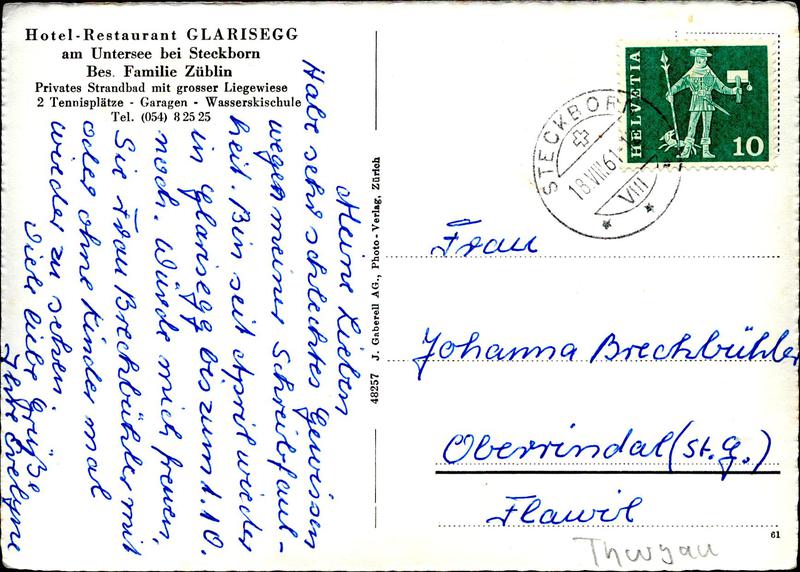 Hotel-Restaurant GLARISEGG
am Untersee bei Steckborn
Bes. Familie Züblin
Privates Strandbad mit grosser Liegewiese
2 Tennisplätze - Garagen - Wasserskischule
Tel. (054) 8 25 25
Meine Lieben
Habe sehr schlechtes Gewissen
wegen meiner Schreibfaul-
heit. Bin seit April wieder
in Glarisegg bis zum 1.10.
noch. Würde mich freuen,
Sie Frau Brechbühler mit
oder ohne Kinder mal
wieder zu sehen.
Viele liebe Grüße
Ihre Evelyne
48257 J. Gaberell AG., Photo-Verlag, Zürich
HELVETIA
10
STECKBORN
18.VIII.61
VIII
Frau
Johanna Brechbühler
Oberrindal (St. G.)
Flawil
61
Thurgau